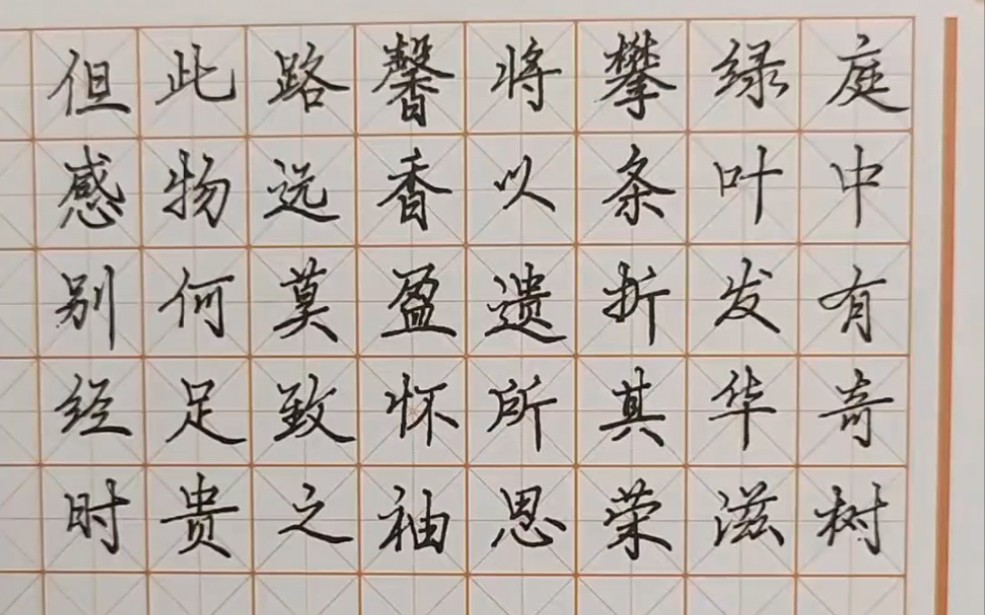 庭中有奇树
绿叶发华滋
攀条折其荣
将以遗所思
馨香盈怀袖
路远莫致之
此物何足贵
但感别经时